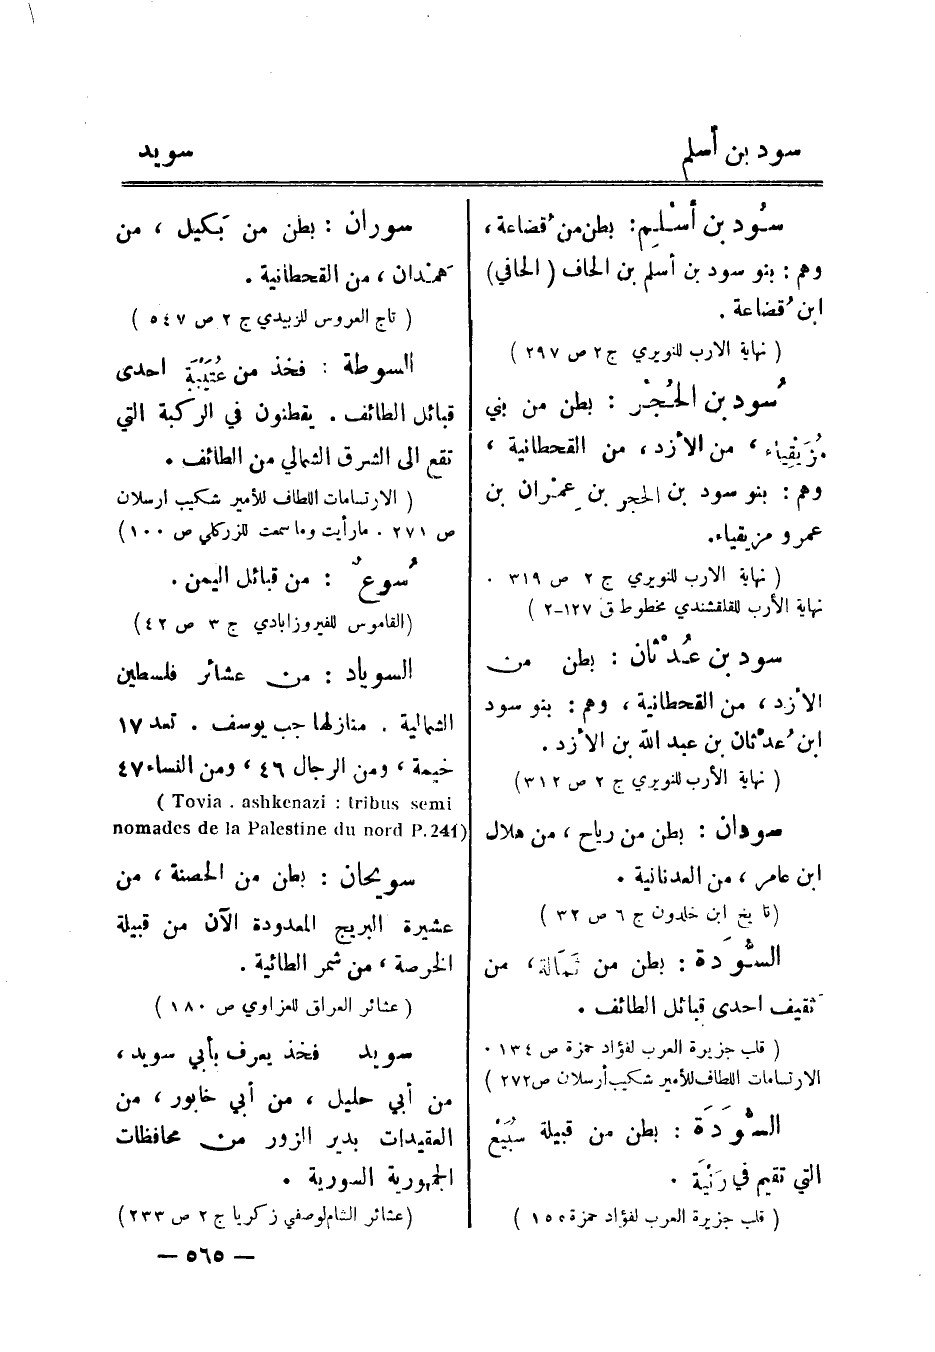 سود بن أسلم
سويد
سُود بن أسْلِم: بطن من قُضاعة،
وهم: بنو سود بن أسلم بن الحاف (الحافي)
ابن قُضاعة.
( نهاية الارب للنويري ج٢ ص ٢٩٧ )
سُود بن الحُجْر : بطن من بني
مُزَيْقِياء، من الأزد، من القحطانية،
وهم: بنو سود بن الحجر بن عِمْران بن
عمرو مزيقياء.
( نهاية الارب للنويري ج ٢ ص ٣١٩ .
نهاية الأرب للقلقشندي مخطوط ق ١٢٧-٢ )
سود بن عُدْثان : بطن من
الأزد، من القحطانية، وهم: بنو سود
ابن عُدْثان بن عبد الله بن الأزد.
( نهاية الأرب للنويري ج ٢ ص ٣١٢)
سودان : بطن من رياح، من هلال
ابن عامر، من العدنانية.
(تاريخ ابن خلدون ج ٦ ص ٣٢ )
السُّوَدَة : بطن من ثُمَالة، من
ثقيف احدى قبائل الطائف.
( قلب جزيرة العرب لفؤاد حمزة ص ١٣٤.
الارتسامات اللطاف للأمير شكيب أرسلان ص٢٧٢ )
السُّوَدَة : بطن من قبيلة سُبَيْع
التي تقيم في رَنْيَة .
( قلب جزيرة العرب لفؤاد حمزة ١٥٥ )
سوران : بطن من بَكيل ، من
هَمْدان ، من القحطانية .
( تاج العروس للزبيدي ج ٢ ص ٥٤٧ )
السوطة : فخذ من عُتَيْبَة احدى
قبائل الطائف . يقطنون في الركبة التي
تقع الى الشرق الشمالي من الطائف .
( الارتسامات اللطاف للأمير شكيب ارسلان
ص ٢٧١ . مارأيت وما سمعت للزركلي ص ١٠٠)
سُوعٌ : من قبائل اليمن .
(القاموس للفيروزابادي ج ٣ ص ٤٢)
السوياد : من عشائر فلسطين
الشمالية . منازلها جب يوسف . تعد ١٧
خيمة ، ومن الرجال ٤٦ ، ومن النساء ٤٧
( Tovia . ashkenazi : tribus semi
nomades de la Palestine du nord P.241)
سويحان : بطن من الحصنة ، من
عشيرة البريج المعدودة الآن من قبيلة
الخرصة ، من شمر الطائية .
( عشائر العراق للعزاوي ص ١٨٠ )
سويد فخذ يعرف بأبي سويد،
من أبي حليل ، من أبي خابور ، من
العقيدات بدير الزور من محافظات
الجمهورية السورية .
(عشائر الشام لوصفي زكريا ج ٢ ص ٢٣٣)
— ٥٦٥ —